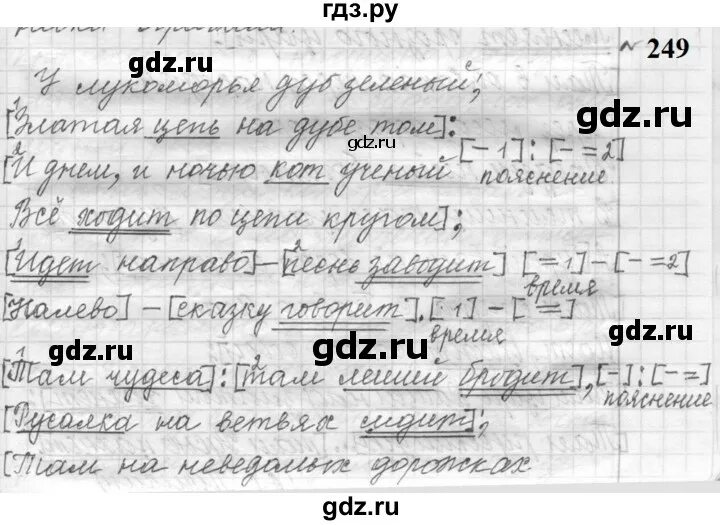 гдз.ру
№ 249
У лукоморья дуб зеленый;
[Златая цепь на дубе том]:
[И днем, и ночью кот ученый [- 1] : [- = 2]
пояснение
Всё ходит по цепи кругом];
[Идет направо] – [песнь заводит] [= 1] – [- = 2]
время
[Налево] – [сказку говорит]. [ 1] – [ = ]
время
[Там чудеса] : [там леший бродит], [-] : [- =]
пояснение
[Русалка на ветвях сидит];
[Там на неведомых дорожках
gdz.ru
gdz.ru
gdz.ru
gdz.ru
gdz.ru
gdz.ru
gdz.ru
gdz.ru
gdz.ru
gdz.ru